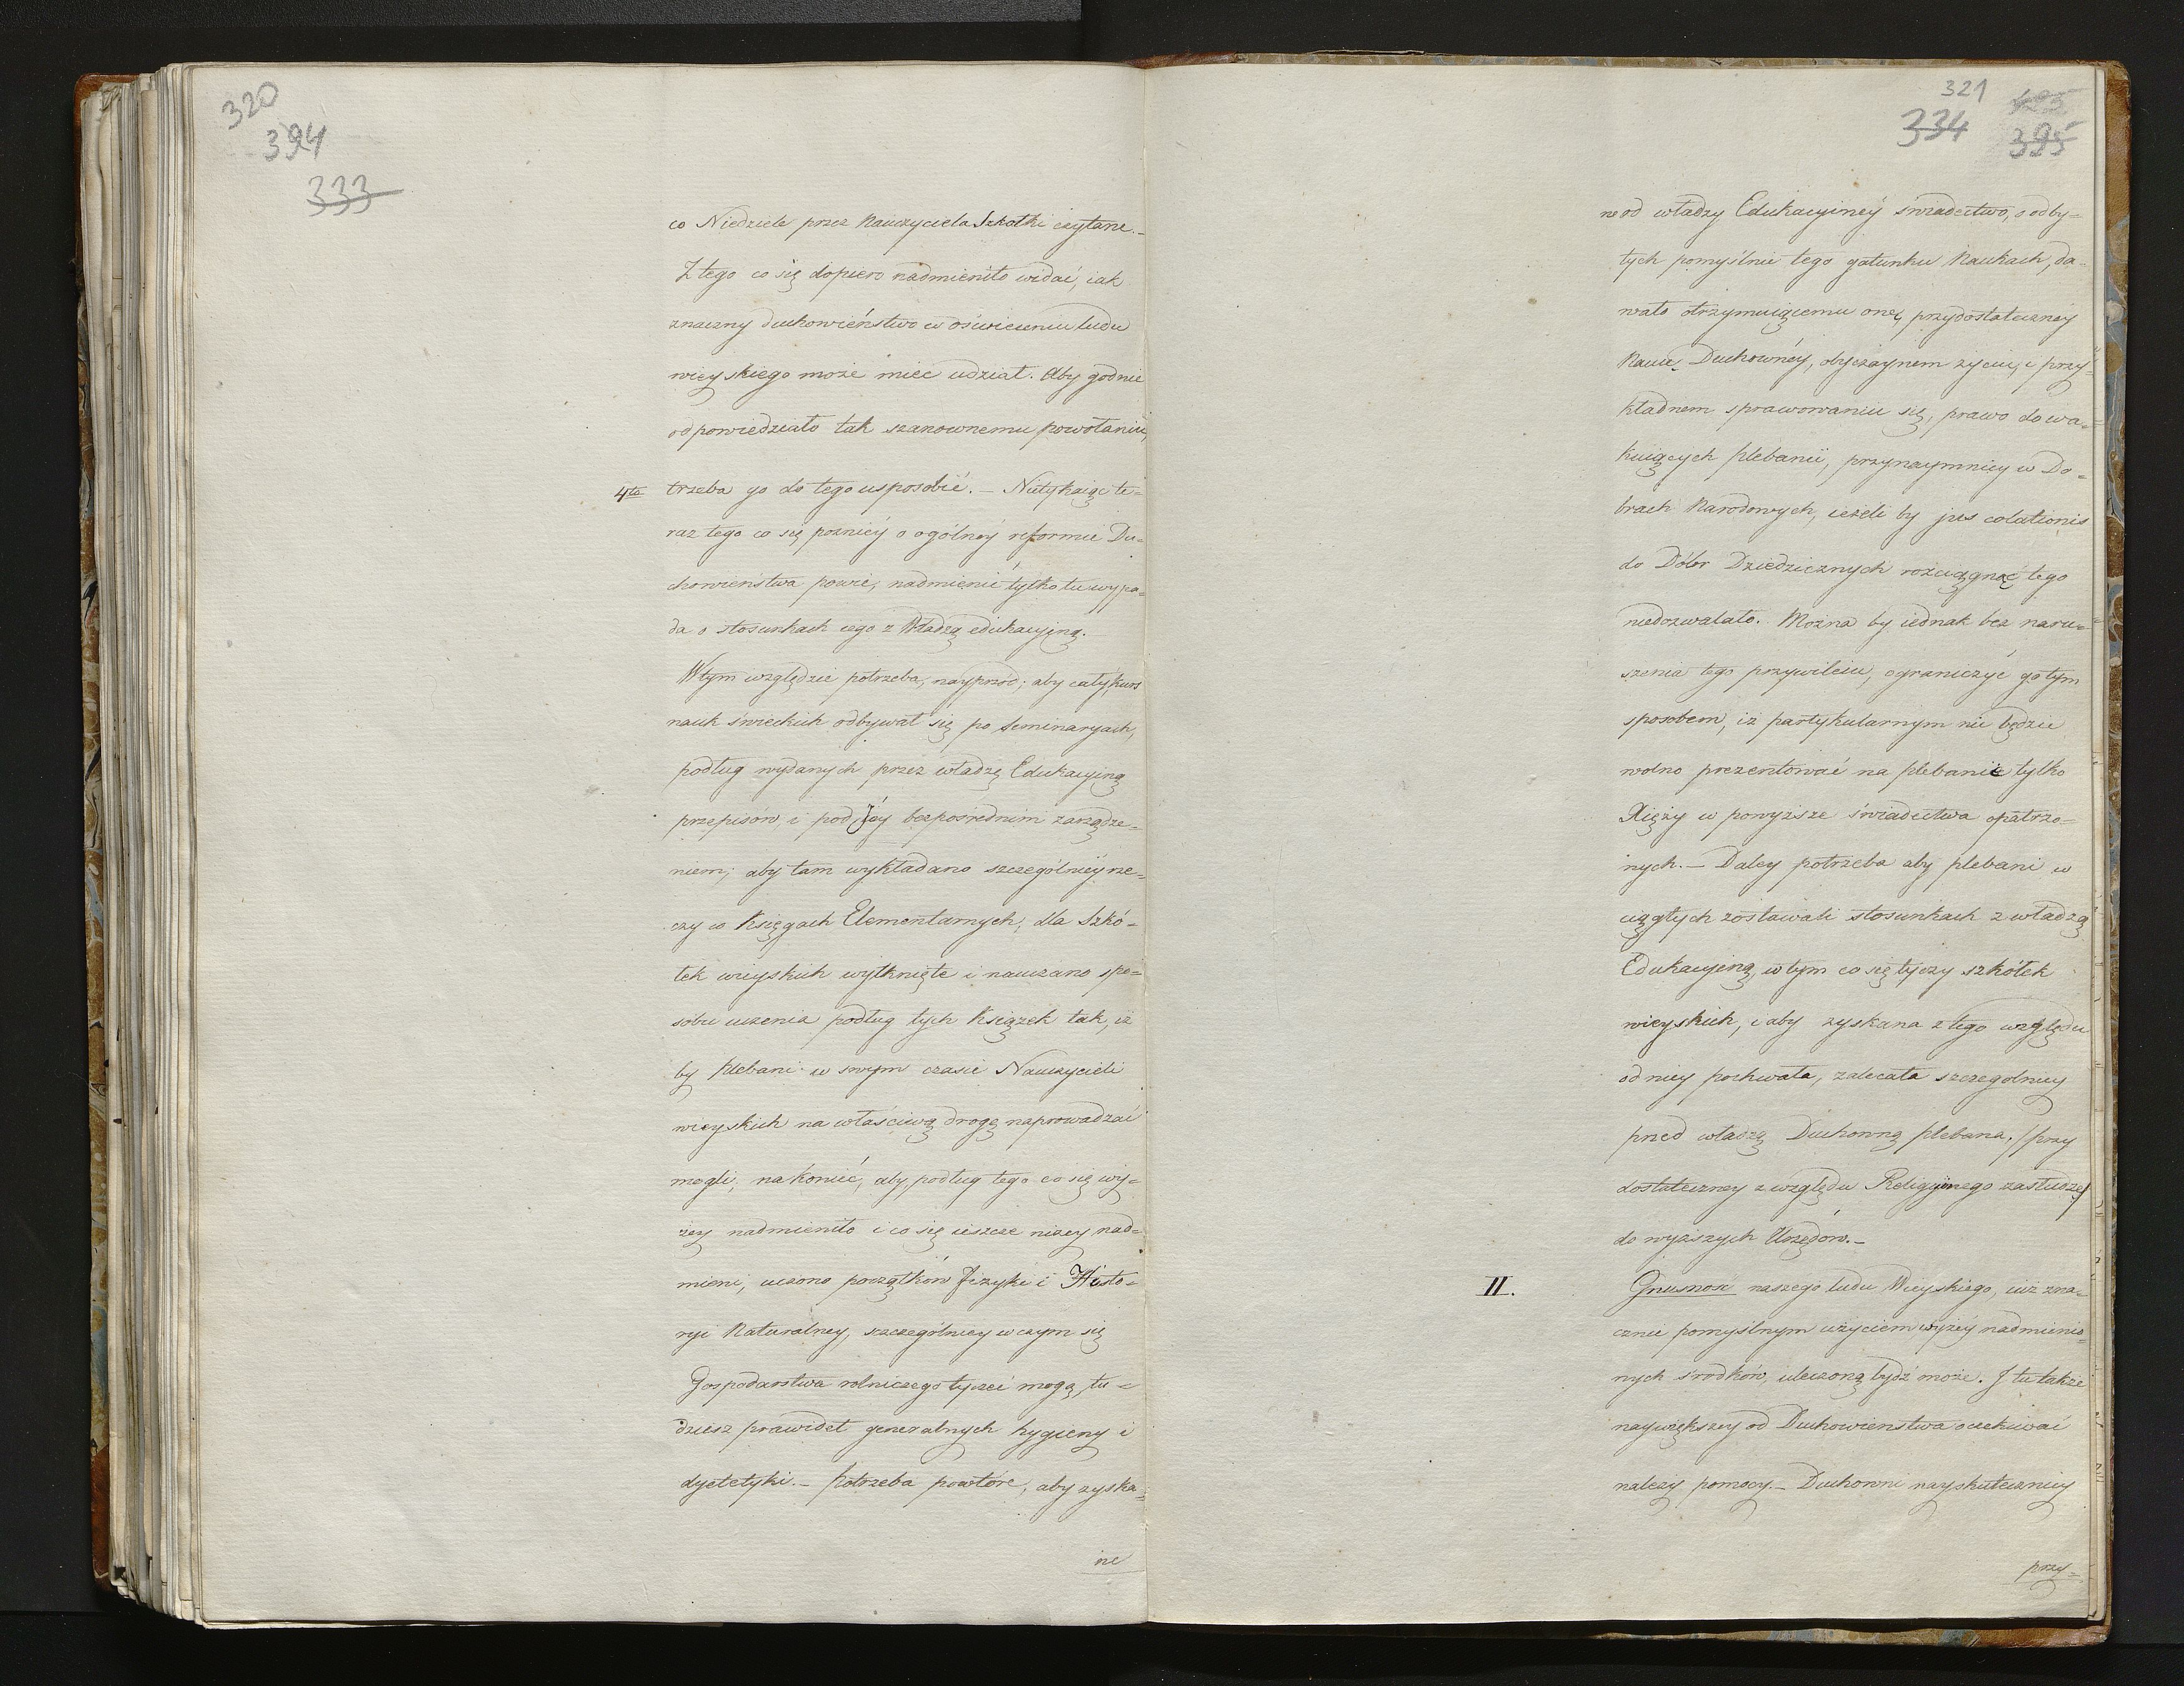 320
394
333
co Niedziele przez Nauczyciela Szkołki czytane.-
Z tego co się dopiero nadmieniło widać, iak
znaczny duchowieństwo w oświeceniu ludu
wieyskiego może mieć udział. Aby godnie
odpowiedziało tak szanownemu powołaniu,
4to trzeba go do tego usposobić. - Nietykaiąc te=
raz tego co się pozniéy o ogólnéy reformie Du=
chowieństwa powie, nadmienić tylko tu wypa=
da o stosunkach iego z Władzą edukacyiną.
W tym względzie potrzeba, nayprzód; aby cały kurs
nauk świeckich odbywał się po Seminaryach,
podług wydanych przez władzę Edukacyiną
przepisów, i pod Jéy bezpośrednim zarządze=
niem; aby tam wykładano szczególniéy rze=
czy w Księgach Elementarnych, dla Szkó=
łek wieyskich wytknięte i nauczano spo=
sobu uczenia podług tych Książek tak, iż
by Plebani w swym czasie Nauczycieli
wieyskich na właściwą drogę naprowadzać
mogli; nakoniec, aby, podług tego co się wy=
żey nadmieniło i co się ieszcze niżey nad=
mieni, uczono początków Fizyki i Histo=
ryi Naturalney, szczególniey w czym się
Gospodarstwa rolniczego tyczeć mogą, tu=
dziesz prawideł generalnych hygieny i
dyetetyki. - Potrzeba powtóre, aby zyska=
ne
321
334 395
ne od władzy Edukacyinéy świadectwo, o odby=
tych pomyślnie tego gatunku Naukach, da=
wało otrzymuiącemu one, przy dostateczney
Nauce Duchownéy, obyczaynem życiu, i przy=
kładnem sprawowaniu się, prawo do wa=
kuiących Plebanii, przynaymniey w Do=
brach Narodowych, ieżeli by jus colationis
do Dóbr Dziedzicznych rozciągnąć tego
niedozwalało. Można by iednak bez naru=
szenia tego przywileiu, ograniczyć go tym
sposobem, iż partykularnym nie będzie
wolno prezentować na plebanie tylko
Xięży w powyższe świadectwa opatrzo=
nych. - Daley potrzeba aby plebani w
ciągłych zostawali stosunkach z władzą
Edukacyiną, w tym co się tyczy szkółek
wieyskich, i aby zyskana z tego względu
od niey pochwała, zalecała szczegolniey
przed władzą Duchowną plebana, /przy
dostateczney z względu Religyinego zasłudze/
do wyższych Urzędów.-
II. Gnusnosc naszego ludu Wieyskiego, iuż zna=
cznie pomyślnym użyciem wyżey nadmienio=
nych środków, uleczoną bydź może. I tu także
naywiększey od Duchowienstwa oczekiwać
należy pomocy.- Duchowni nayskuteczniey
przy=